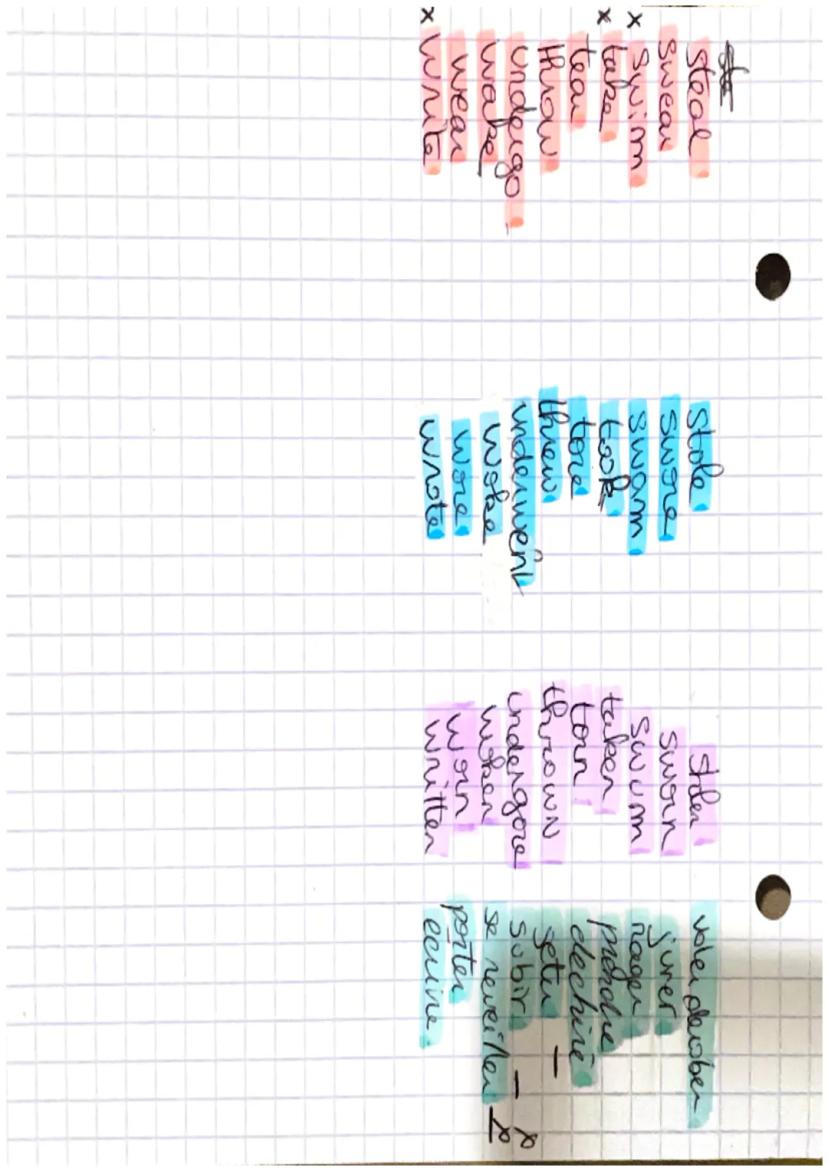 ste
steal stole stolen voler dérober
swear swore sworn jurer
x swim swam swum nager
x take took taken prendre
tear tore torn dechiré
throw threw thrown jeter
undergo underwent undergone subir
wake woke woken se reveiller
wear wore worn porter
x write wrote written ecrire